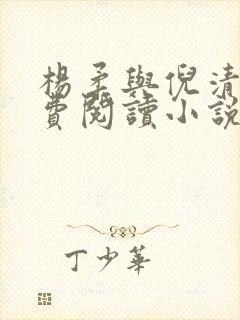 楊矛與倪清
費閱讀小說
丁少華